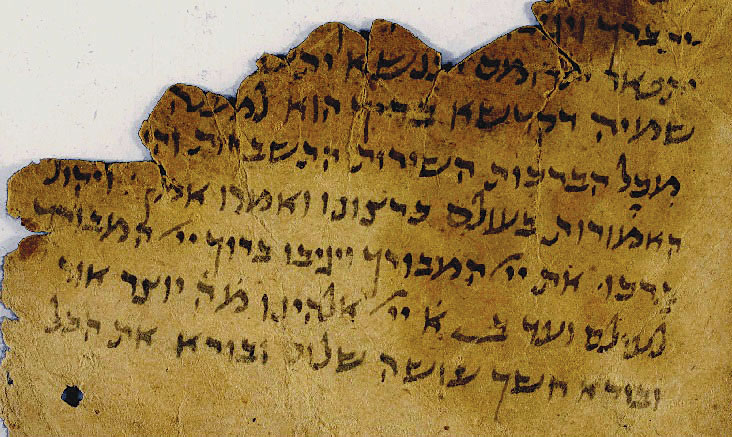 יתברך
יתפאר יתרומם
שמיה דקדשא בריך הוא למעלה
מכל הברכות השירות התשבחות
האמורות בעולם כרצונו ואמרו אמן
ברכו את ייי המבורך ברוך ייי המבורך
לעולם ועד ב א ייי אלהינו מה יוצר אור
ובורא חשך עושה שלום ובורא את הכל